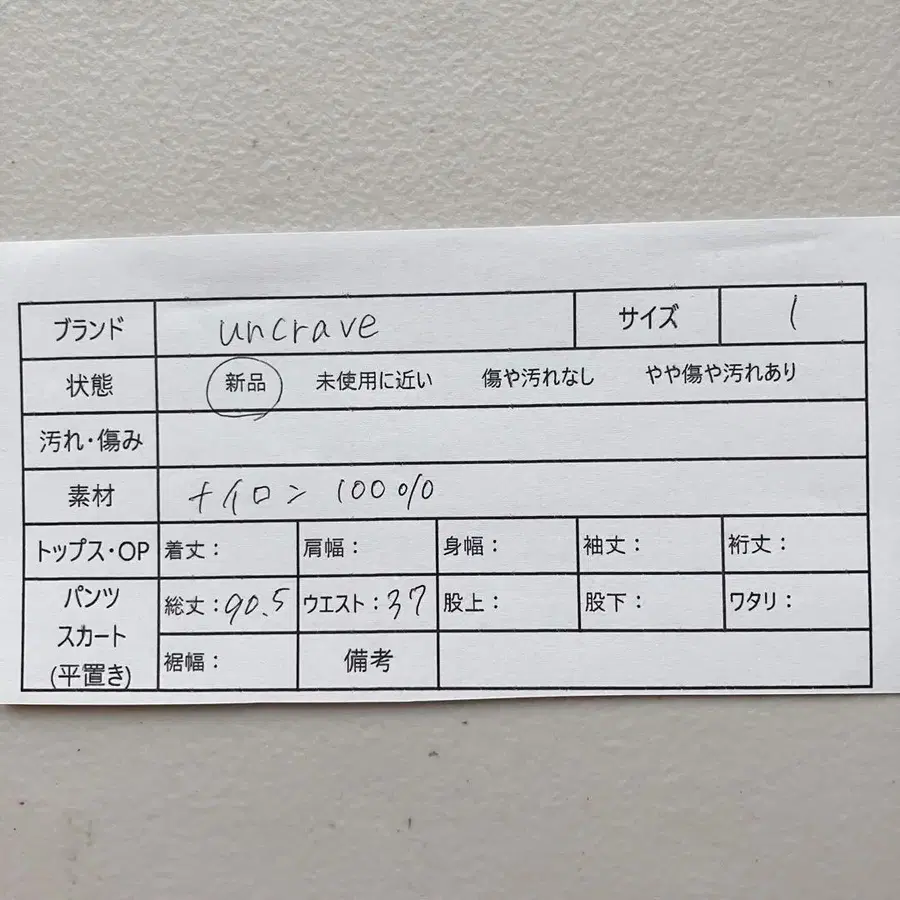 ブランド uncrave サイズ 1
状態 新品 未使用に近い 傷や汚れなし やや傷や汚れあり
汚れ・傷み
素材 ナイロン 100%
トップス・OP 着丈： 肩幅： 身幅： 袖丈： 裄丈：
パンツ
スカート
(平置き)
総丈：90.5 ウエスト：37 股上： 股下： ワタリ：
裾幅： 備考